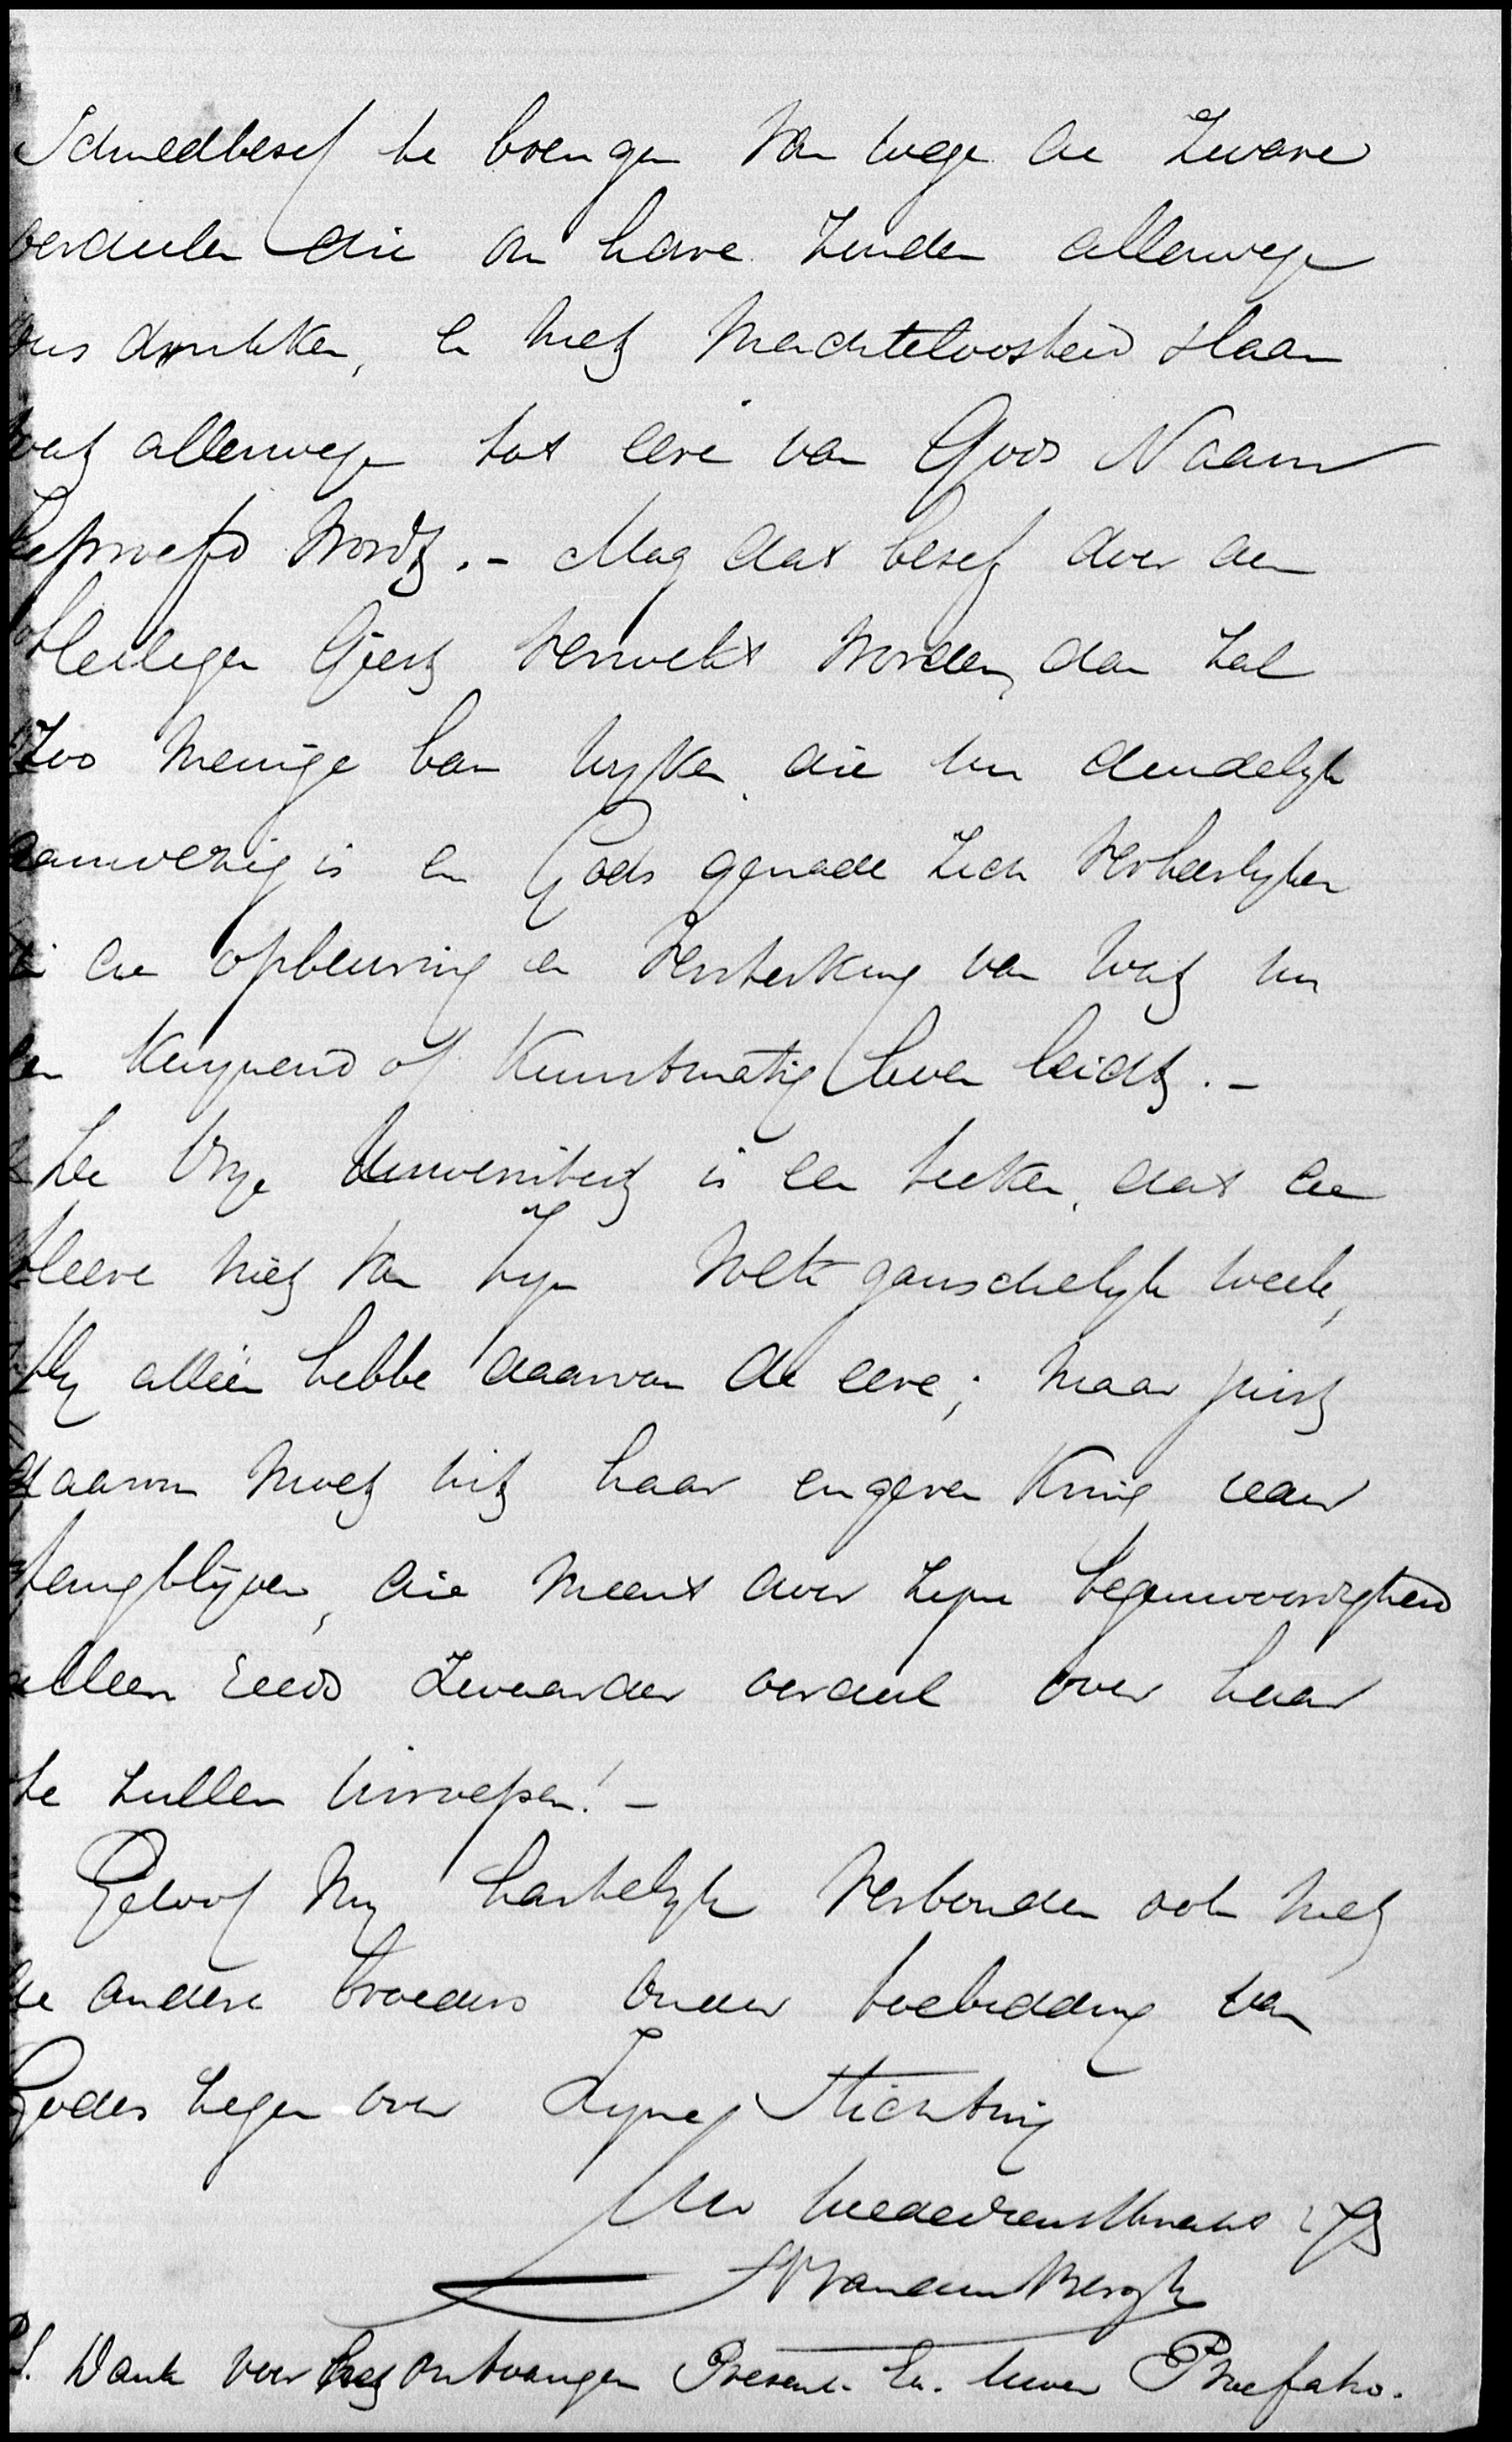 Schuldbesef te brengen van wege de zware
oordeelen die om hare zonden allerwege
ons drukken, en met machteloosheid slaan
wat allerwege tot eere van Gods Naam
beproefd wordt. - Mag dat besef door den
Heiligen Geest verwekt worden, dan zal
zoo menige ban wijken, die nu duidelijk
aanwezig is en Gods genade zich verheerlijken
in de opbeuring en versterking van wat nu
een kwijnend of kunstmatig leven leidt. -
De Vrije Universiteit is een teeken, dat de
Heere niet van zijn volk ganschelijk week,
Hij alleen hebbe daarvan de eere; maar juist
daarom moet uit haar engeren kring weer
terugblijven, die meent door zijne tegenwoordigheid
alleen reeds zwaarder oordeel over haar
te zullen inroepen! -
Geloof mij hartelijk verbonden ook met
de andere broeders onder toebidding van
Godes zegen over Zijne Stichting
Uw mededienstknecht
vanden Bergh
P.S. Dank voor het ontvangen Present-Ex. Uwer